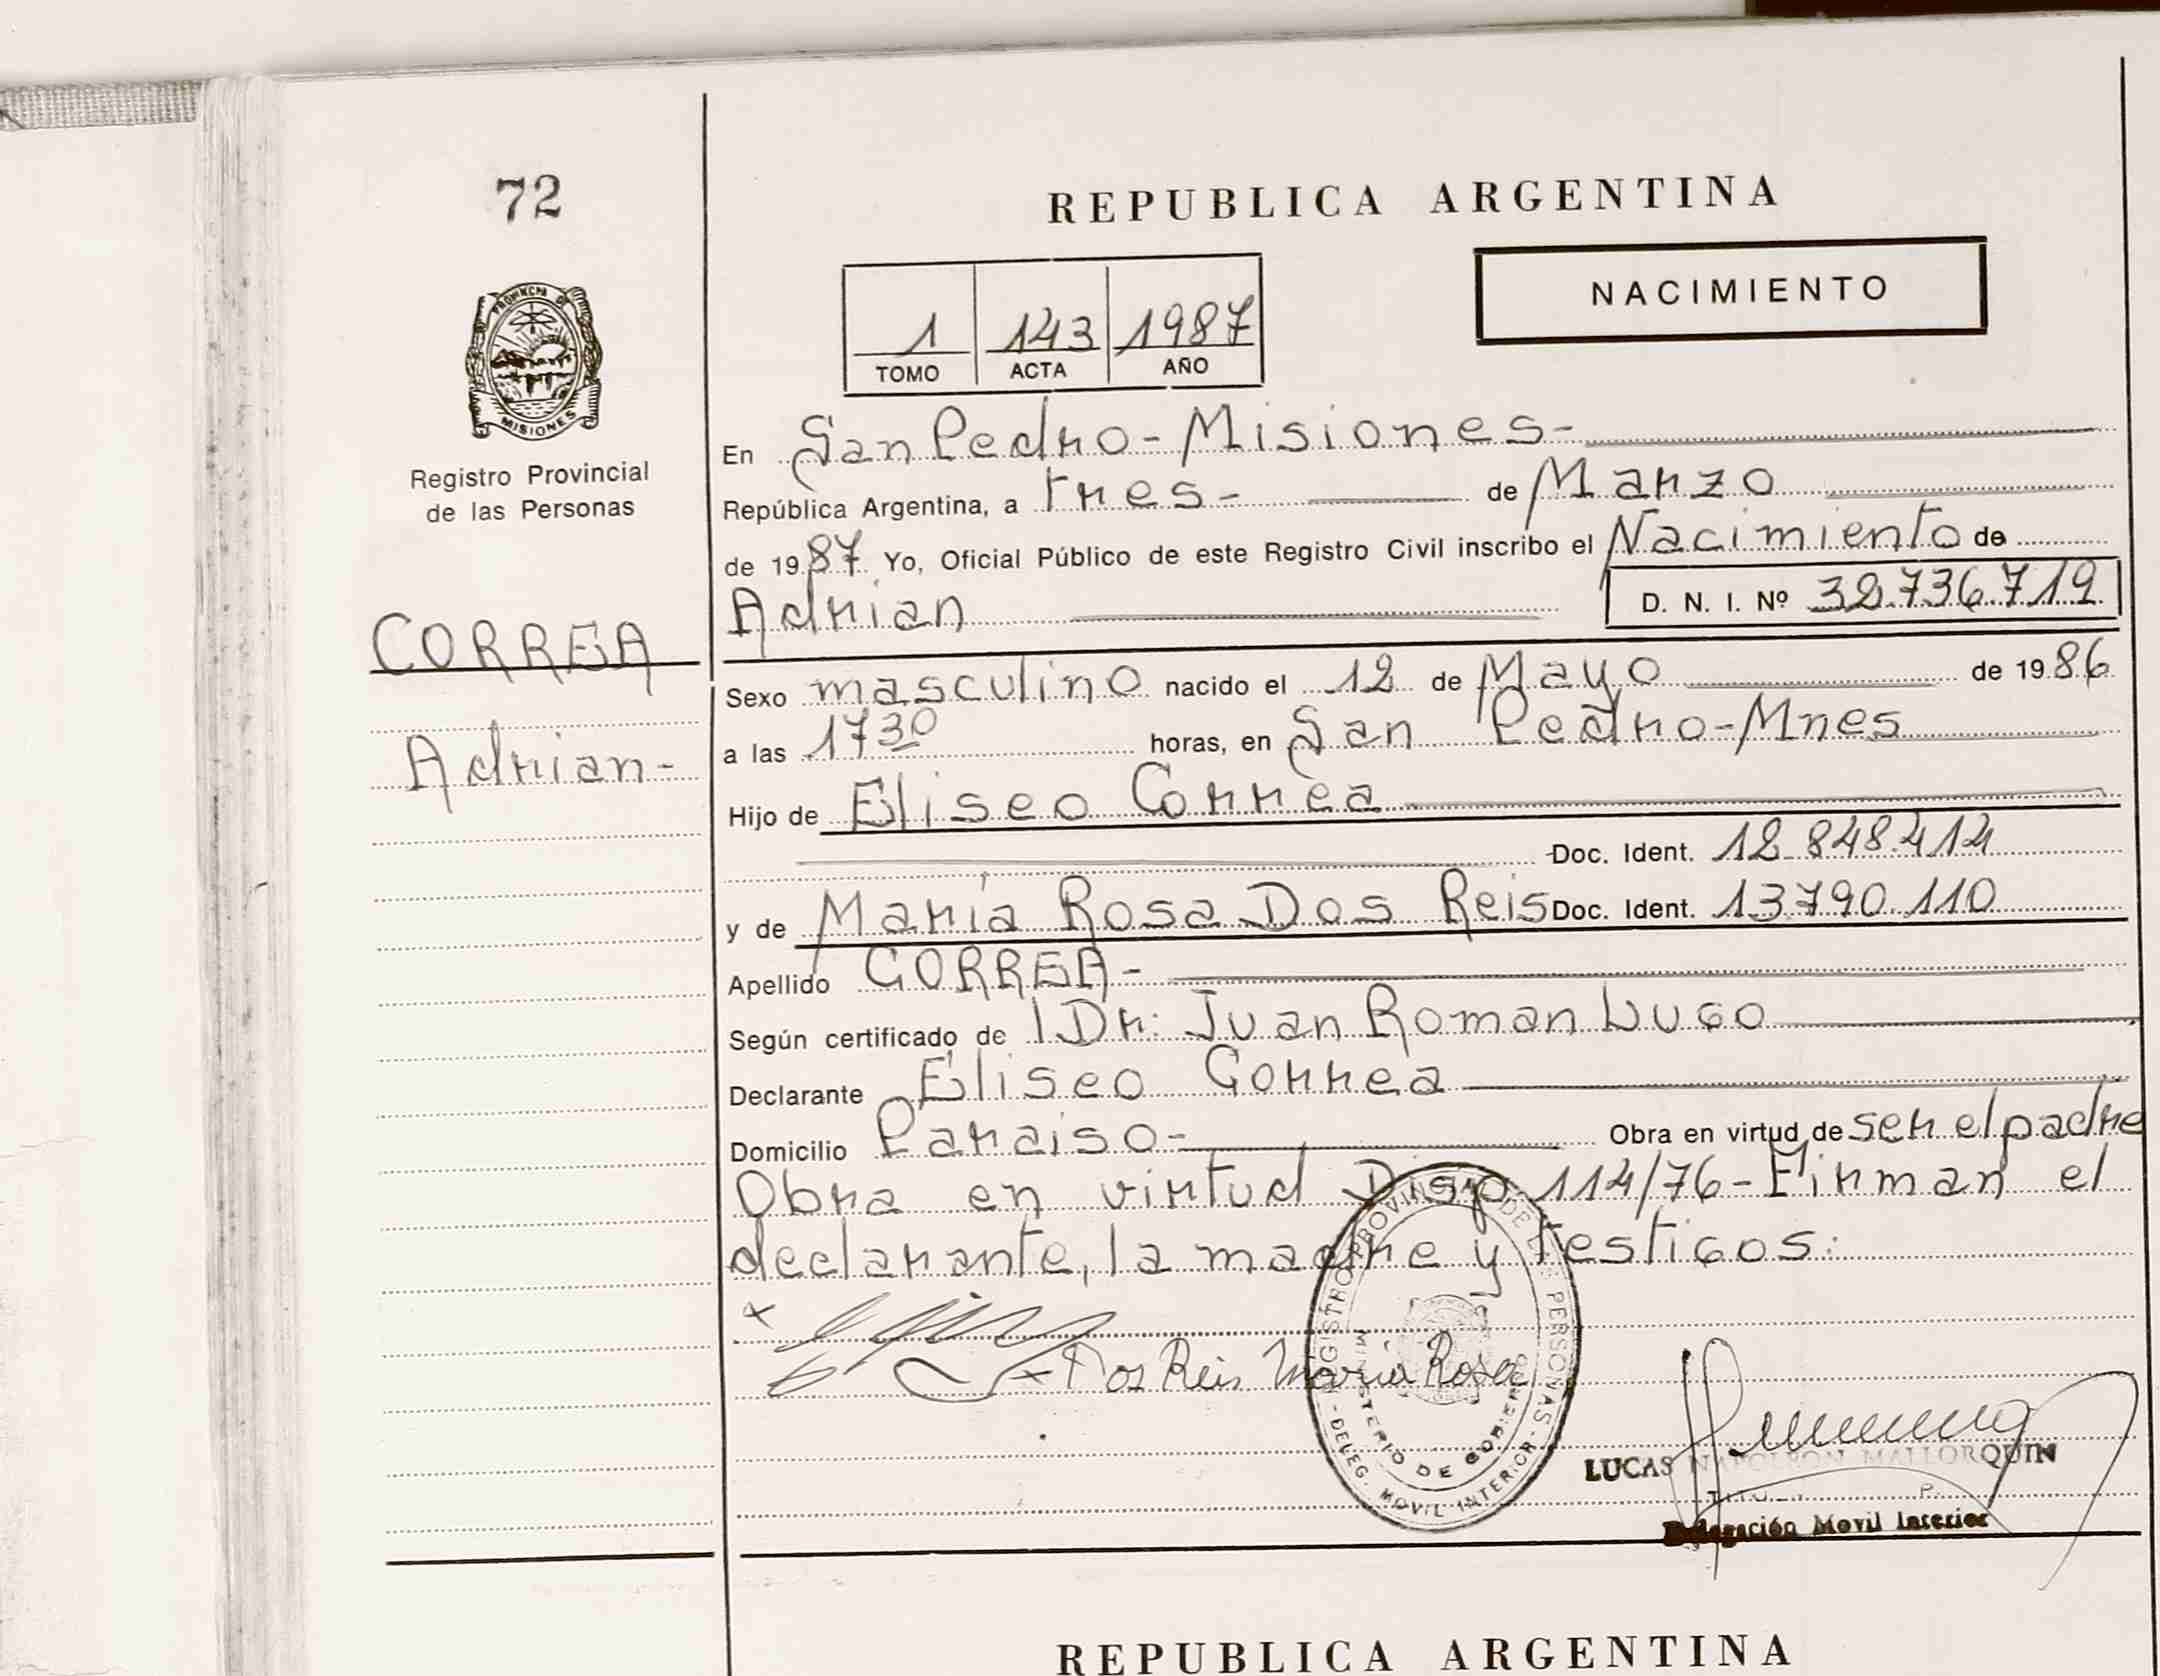 72
REPUBLICA ARGENTINA
NACIMIENTO
1 143 1987
TOMO ACTA AÑO
PROVINCIA DE
MISIONES
Registro Provincial
de las Personas
CORREA
Adrian-
En San Pedro - Misiones-
República Argentina, a tres- de Marzo
de 1987 Yo, Oficial Público de este Registro Civil inscribo el Nacimiento de
Adrian D. N. I. Nº 32.736.719
Sexo masculino nacido el 12 de Mayo de 1986
a las 17 30 horas, en San Pedro-Mnes
Hijo de Eliseo Correa
Doc. Ident. 12.848.414
y de María Rosa Dos Reis Doc. Ident. 13.790.110
Apellido CORREA-
Según certificado de Dr: Juan Roman Lugo
Declarante Eliseo Correa
Domicilio Paraiso- Obra en virtud de ser el padre
Obra en virtud Disp 114/76-Firman el
declarante, la madre y testigos:
Dos Reis María Rosa
REGISTRO PROVINCIAL DE LAS PERSONAS
MINISTERIO DE GOBIERNO
-DELEG. MOVIL INTERIOR-
LUCAS NAPOLEON MALLORQUIN
Delegación Movil Interior
REPUBLICA ARGENTINA